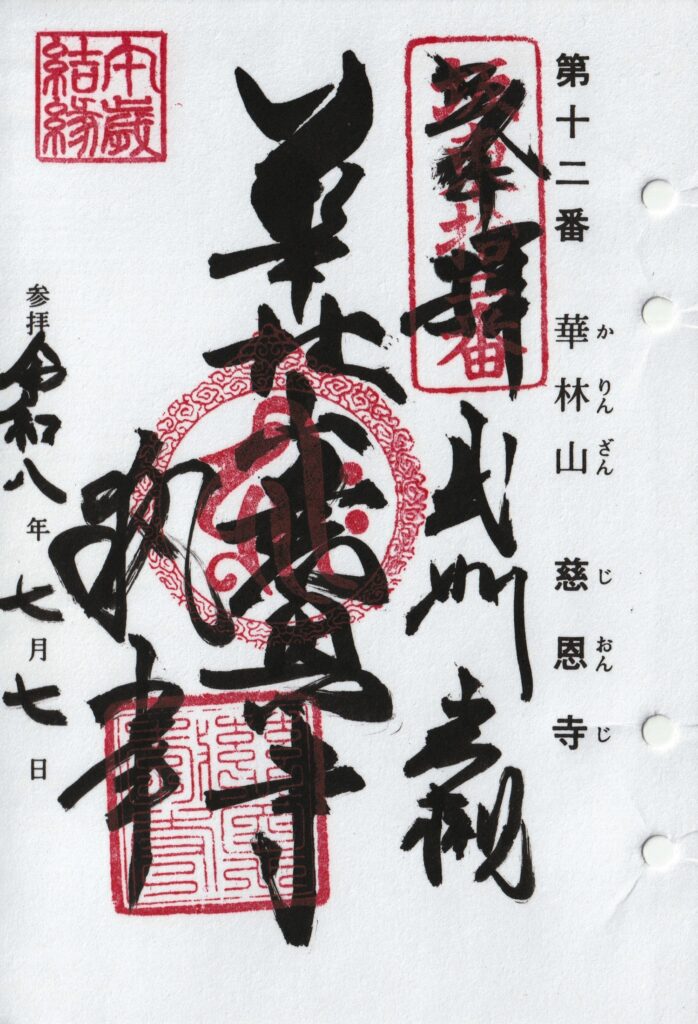 第十二番 華林山 慈恩寺
かりんざん じおんじ
坂東拾二番
奉拝 武州 岩槻
華林山慈恩寺
執事
本歳結縁
参拝 令和八年七月七日